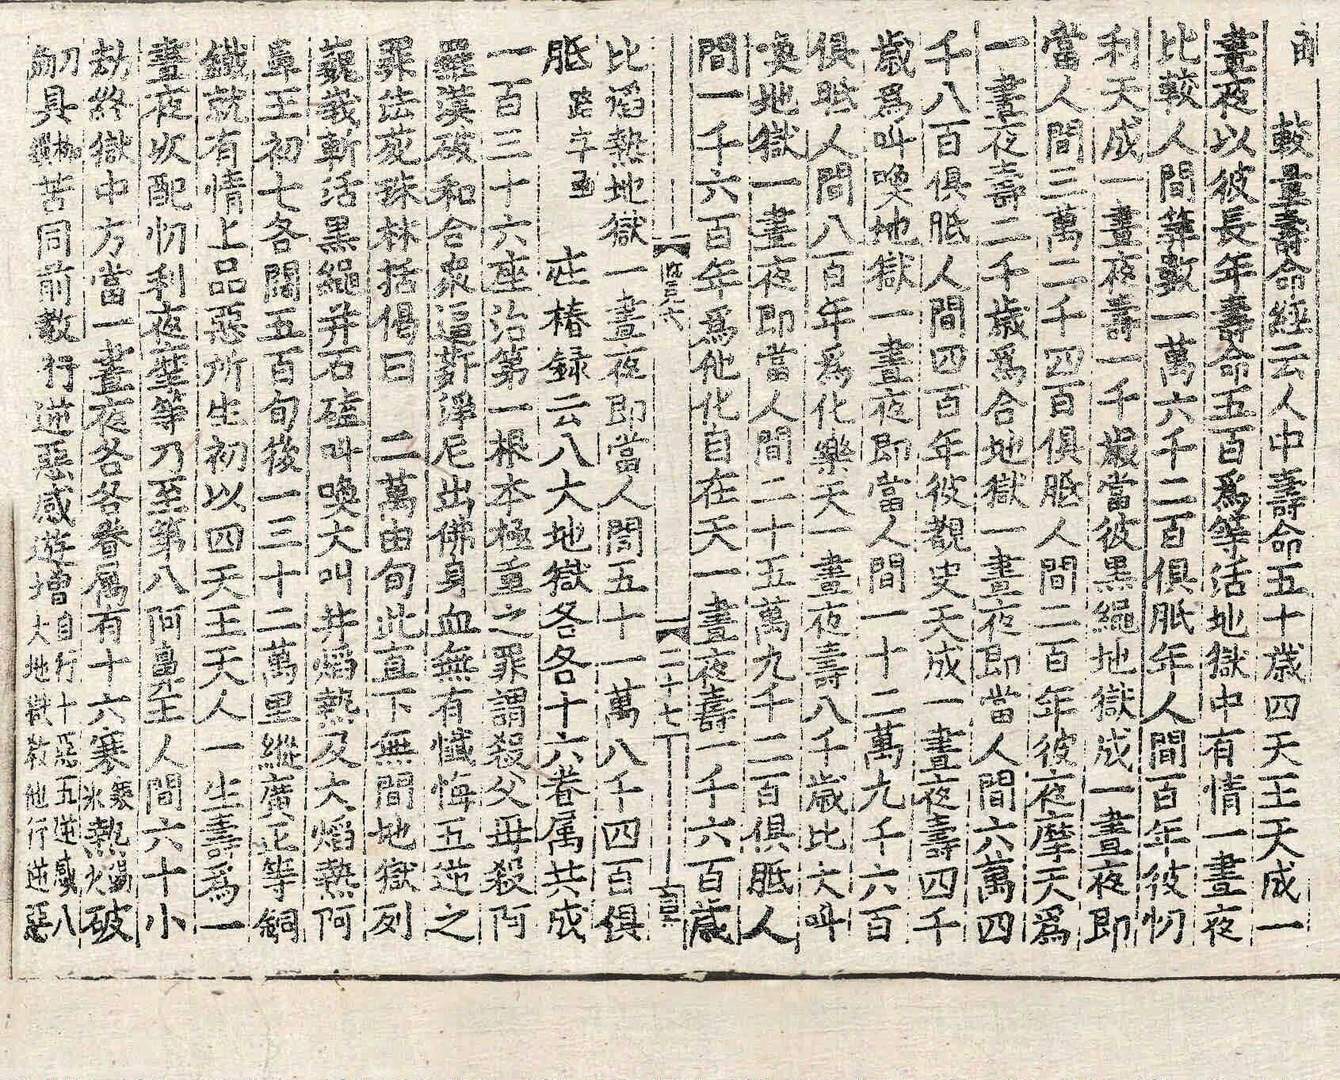 較量壽命經云人中壽命五十歲四天王天成一
晝夜以彼長年壽命五百爲等活地獄中有情一晝夜
比較人間筭數一萬六千二百俱胝年人間百年彼忉
利天成一晝夜壽一千歲當彼黑繩地獄成一晝夜即
當人間三萬二千四百俱胝人間二百年彼夜摩天爲
一晝夜壽二千歲爲合地獄一晝夜即當人間六萬四
千八百俱胝人間四百年彼覩史天成一晝夜壽四千
歲爲叫喚地獄一晝夜即當人間一十二萬九千六百
俱胝人間八百年爲化樂天一晝夜壽八千歲比大叫
喚地獄一晝夜即當人間二十五萬九千二百俱胝人
間一千六百年爲他化自在天一晝夜壽一千六百歲
二十七
比㷔熱地獄一晝夜即當人間五十一萬八千四百俱
胝 莊椿録云八大地獄各各十六眷属共成
一百三十六座治第一根本極重之罪謂殺父毋殺阿
羅漢破和合衆逼㳺淨尼出佛身血無有懺悔五逆之
罪法苑珠林括偈曰 二萬由旬此直下無間地獄列
巍峩斬活黑繩并石磕叫喚大叫并焰熱及大焰熱阿
鼻王初七各闊五百旬後一三十二萬里縱廣正等銅
鐵就有情上品惡所生初以四天王天人一生壽爲一
晝夜次配忉利夜摩等乃至第八阿鼻王人間六十小
劫終獄中方當一晝夜各各眷属有十六寒氷熱火破
刀具苦同前教行逆惡感遊增自行十惡五逆感八大地獄教他行逆惡